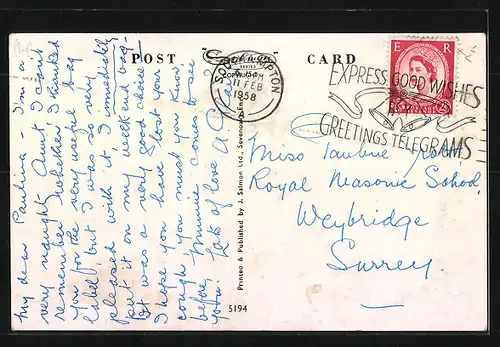 POST
Salmon
SERIES
COPYRIGHT
CARD
My dear Paulina - I'm a
very naught Aunt I can't
remember whether I thanked
you for the very useful bag
label, but I was so very
pleased with it. I immediately
put it on my weekend bag -
It was a very good idea!
I hope you have lost your
cough you must you know
before Minnie comes to see
you. Lots of love A
11 FEB
1958
A
E R
EXPRESS GOOD WISHES
BY
GREETINGS TELEGRAMS
Miss Pauline
Royal Masonic School,
Weybridge
Surrey
Printed & Published by J. Salmon Ltd., Sevenoaks, Eng.
5194